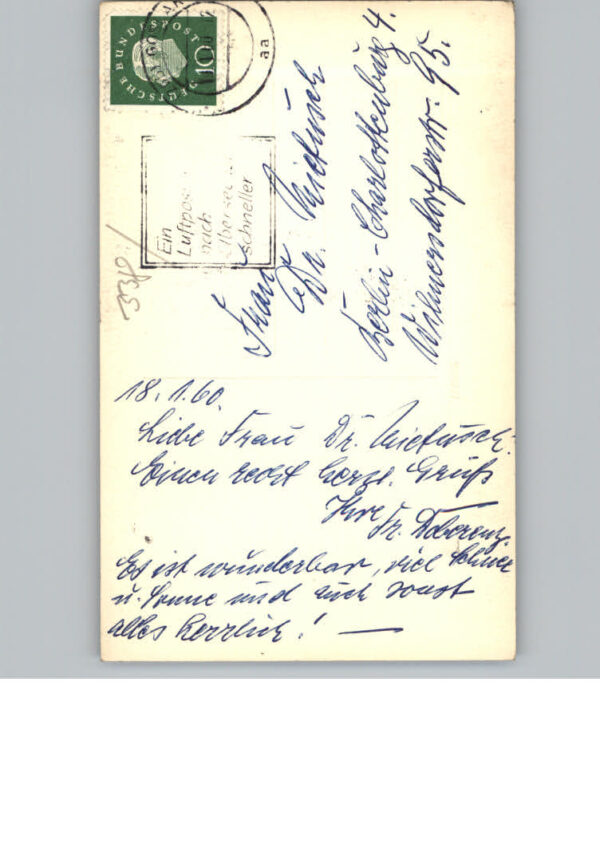 DEUTSCHE BUNDESPOST
10
aa
Ein
Luftpos
nach
Übersee
schneller
338/
Frau
Dr.
Berlin-Charlottenburg 4.
Wilmersdorferstr. 95.
18.1.60
Liebe Frau Dr.
Einen recht herzl. Gruß
Ihre
Fr.
Es ist wunderbar, viel Schnee
u. Sonne und auch sonst
alles herrlich! —